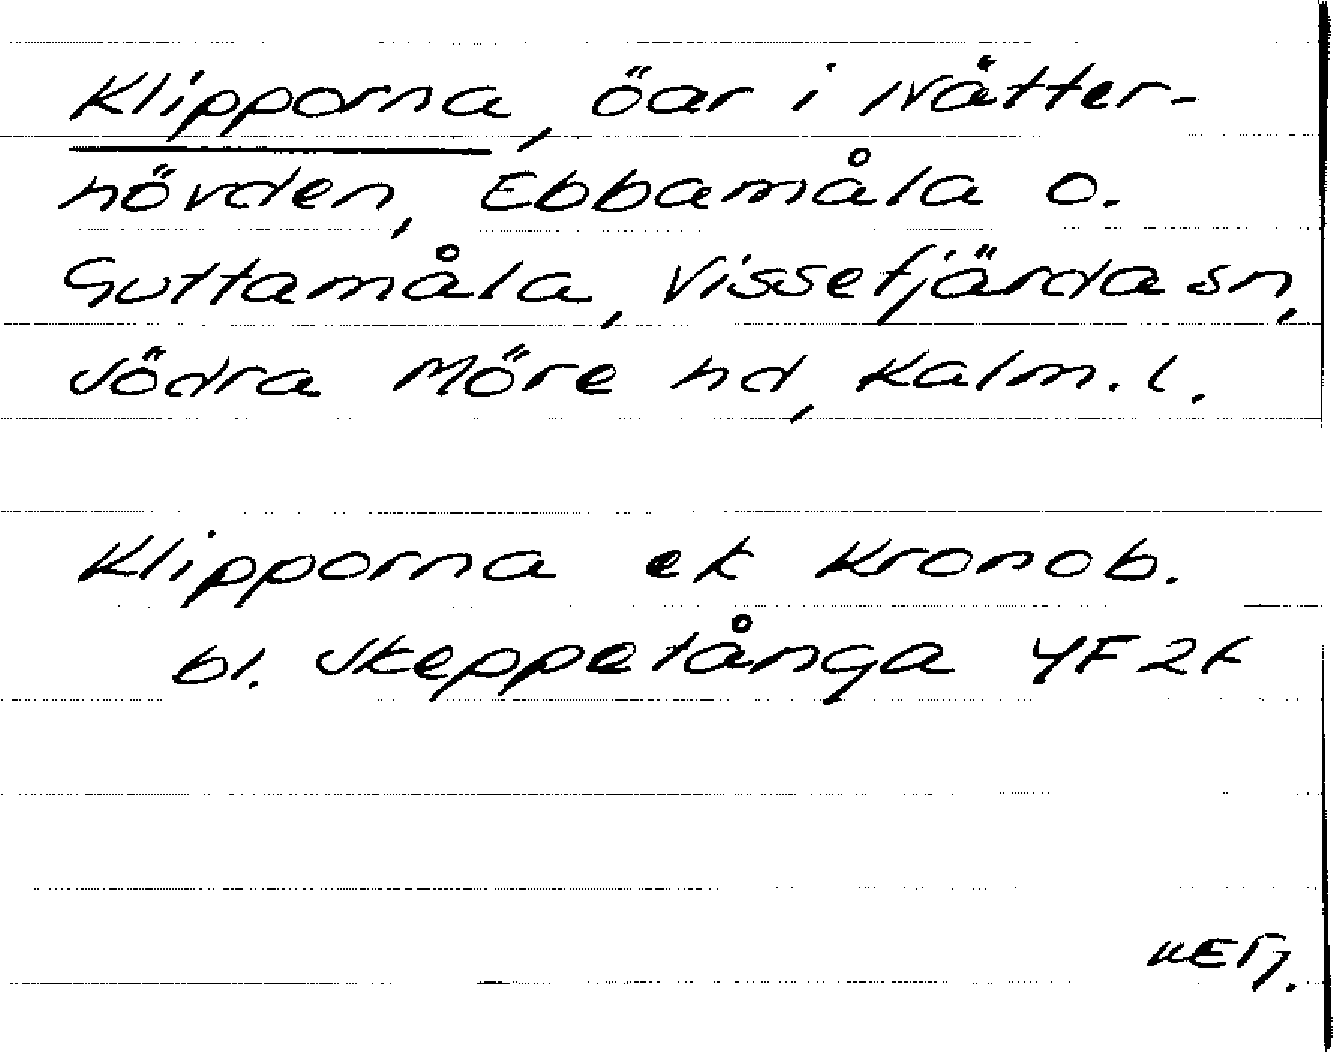 Klipporna, öar i Nätter-
hövden, Ebbamåla o.
Guttamåla, Vissefjärda sn,
Södra Möre hd, Kalm. l.
Klipporna ek Kronob.
bl. Skeppetånga 4F2f